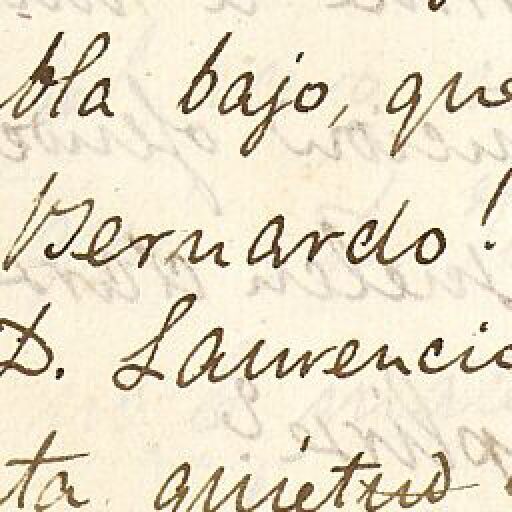 bla bajo, que
Bernardo!
D. Laurencio
ta quietud